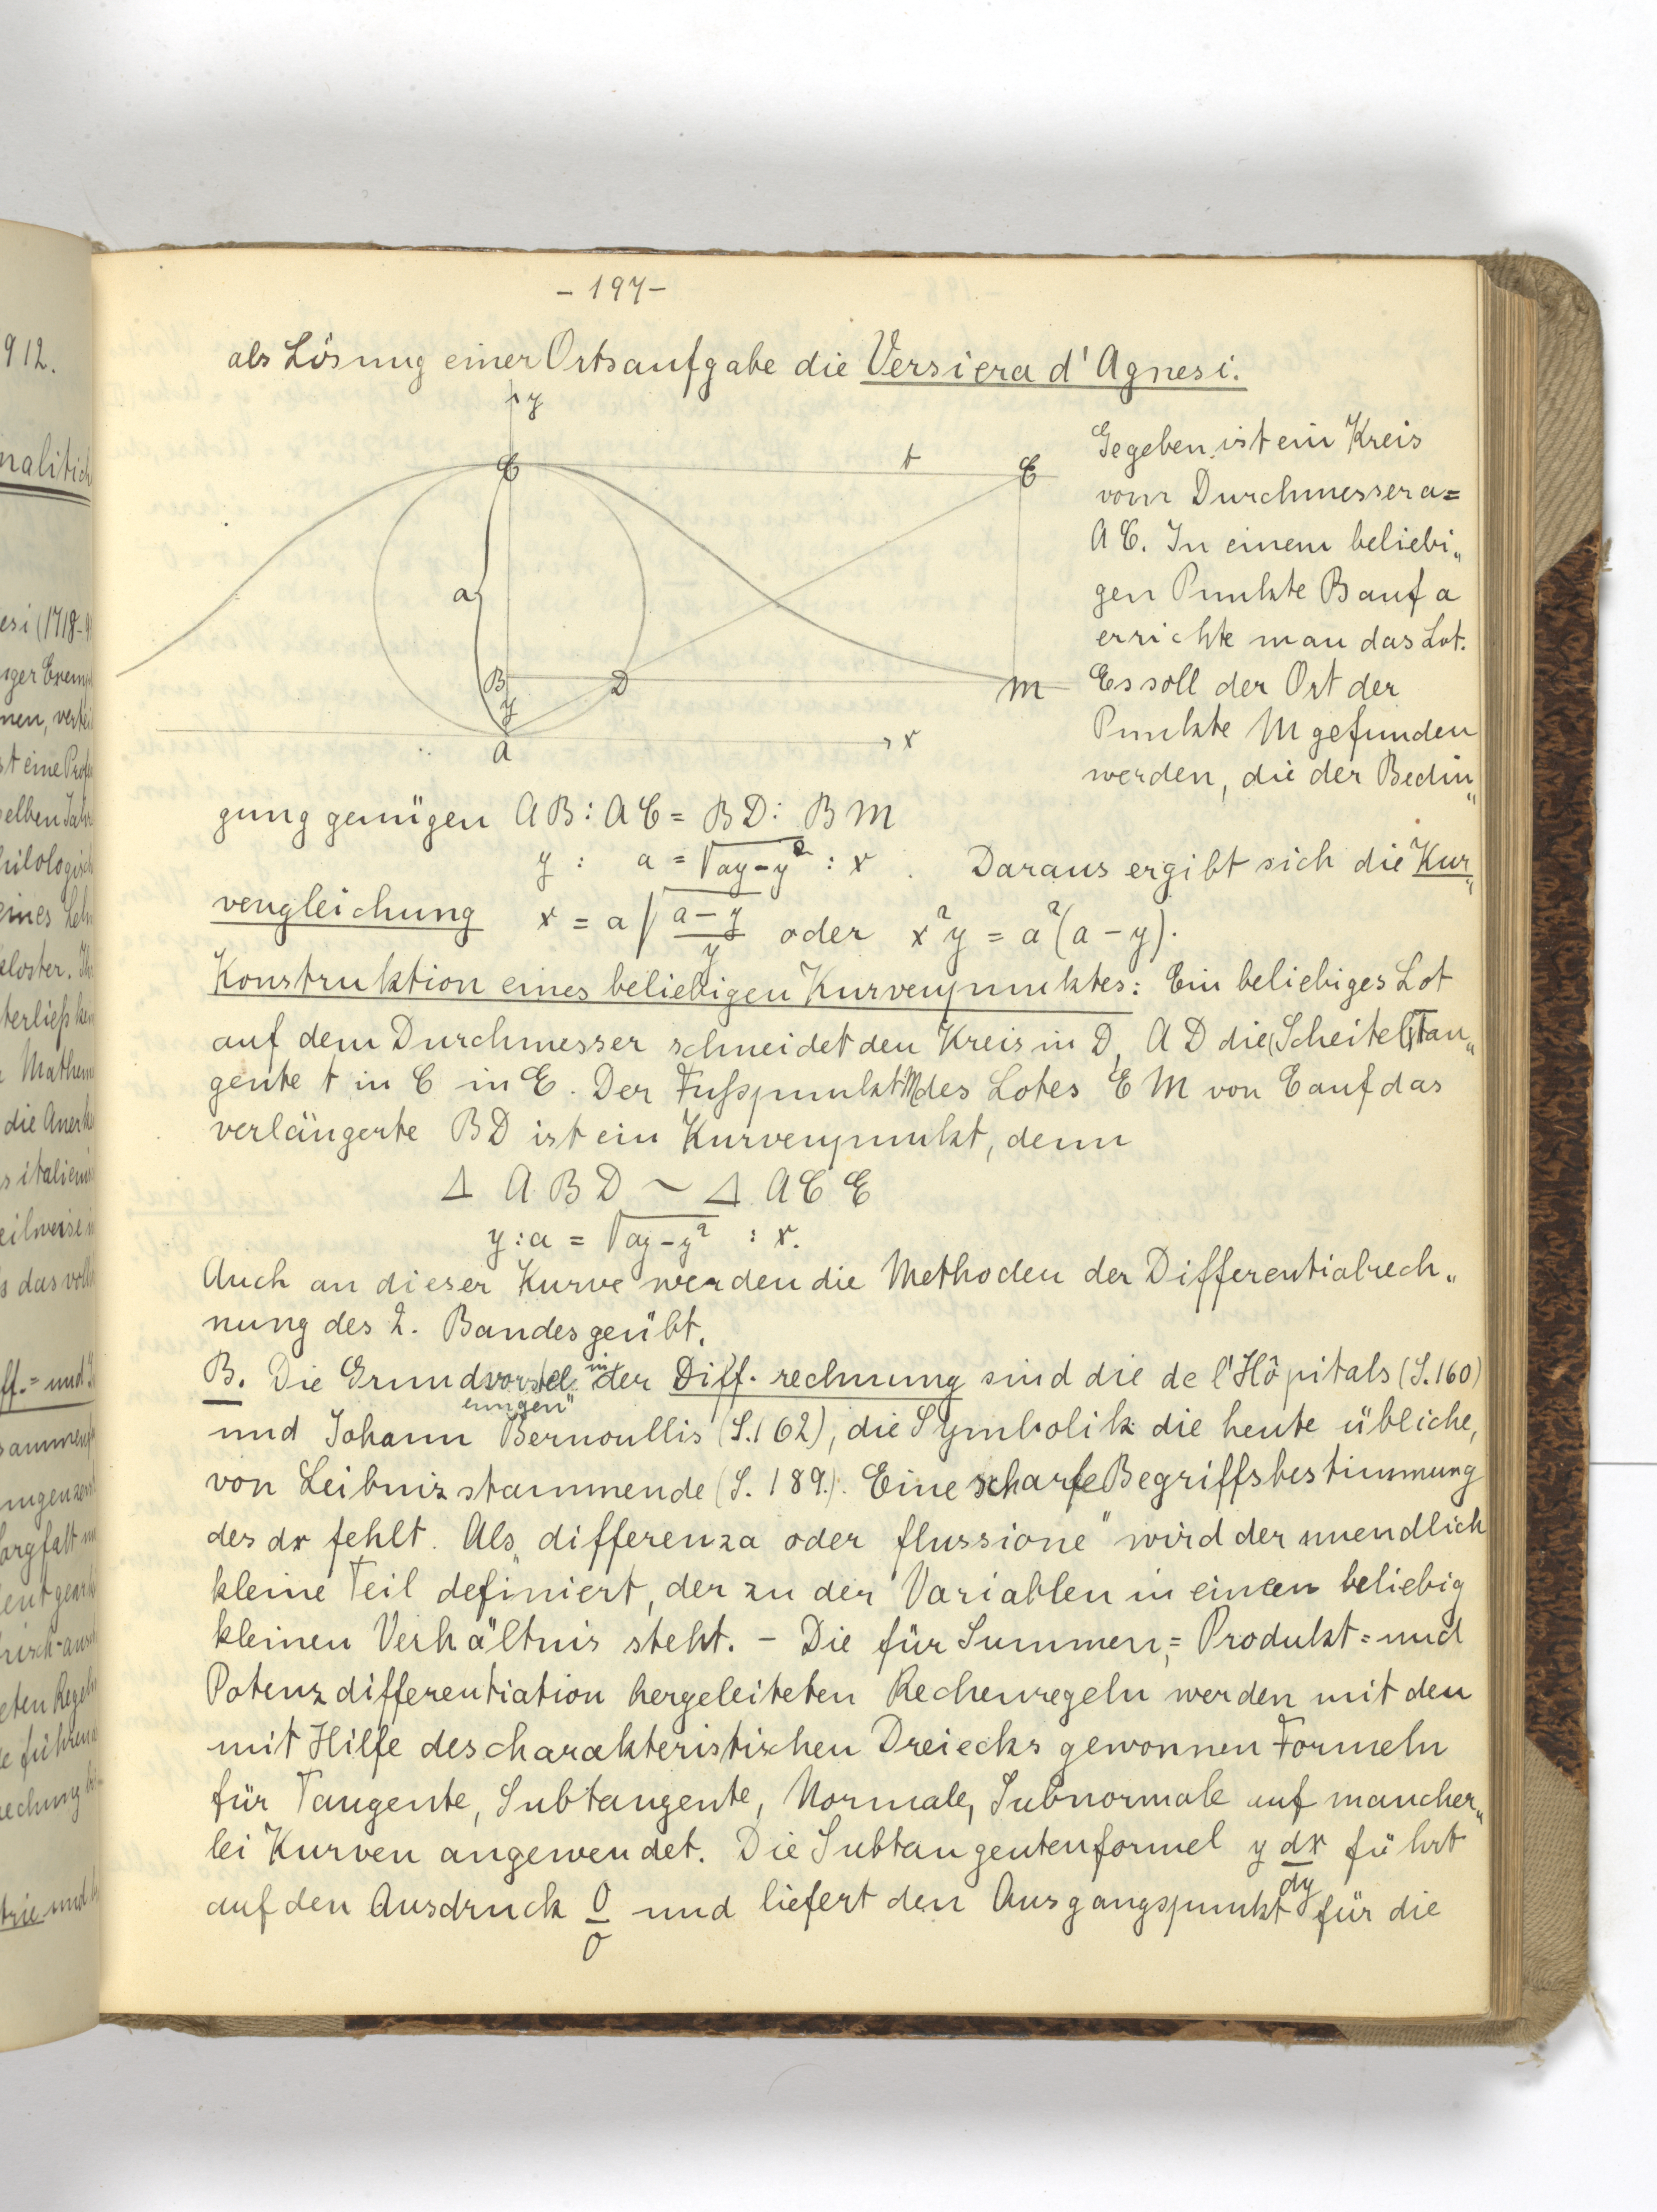 - 197 -
als Lösung einer Ortsaufgabe die Versiera d'Agnesi.
y
C
t
E
a
B
D
M
y
A
x
Gegeben ist ein Kreis
vom Durchmesser a =
AC. In einem beliebi„
gen Punkte B auf a
errichte man das Lot.
Es soll der Ort der
Punkte M gefunden
werden, die der Bedin„
gung genügen AB : AC = BD : BM
y : a = √(ay - y²) : x. Daraus ergibt sich die Kur„
vengleichung x = a √((a - y)/y) oder x²y = a²(a - y).
Konstruktion eines beliebigen Kurvenpunktes: Ein beliebiges Lot
auf dem Durchmesser schneidet den Kreis in D, AD die (Scheitel)tan„
gente t in C in E. Der Fußpunkt M des Lotes EM von E auf das
verlängerte BD ist ein Kurvenpunkt, denn
Δ ABD ~ Δ ACE
y : a = √(ay - y²) : x.
Auch an dieser Kurve werden die Methoden der Differentialrech„
nung des 2. Bandes geübt.
B. Die Grundvorstellungen in der Diff. rechnung sind die de l'Hôpitals (S. 160)
und Johann Bernoullis (S. 162), die Symbolik die heute übliche,
von Leibniz stammende (S. 189.). Eine scharfe Begriffsbestimmung
des dx fehlt. Als „differenza oder flussione" wird der unendlich
kleine Teil definiert, der zu der Variablen in einem beliebig
kleinen Verhältnis steht. - Die für Summen,= Produkt= und
Potenzdifferentiation hergeleiteten Rechenregeln werden mit den
mit Hilfe des charakteristischen Dreiecks gewonnen Formeln
für Tangente, Subtangente, Normale, Subnormale auf mancher„
lei Kurven angewendet. Die Subtangentenformel y dx/dy führt
auf den Ausdruck 0/0 und liefert den Ausgangspunkt für die